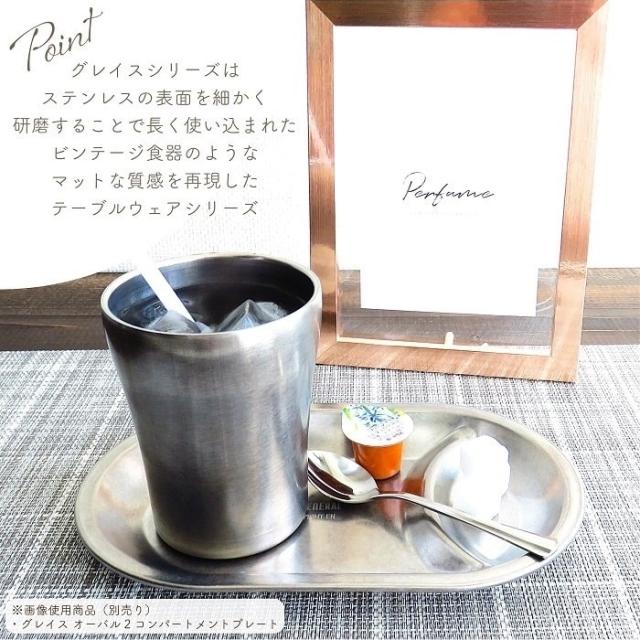 Point
グレイスシリーズは
ステンレスの表面を細かく
研磨することで長く使い込まれた
ビンテージ食器のような
マットな質感を再現した
テーブルウェアシリーズ
Perfume
※画像使用商品（別売り）
・グレイス オーバル２コンパートメントプレート